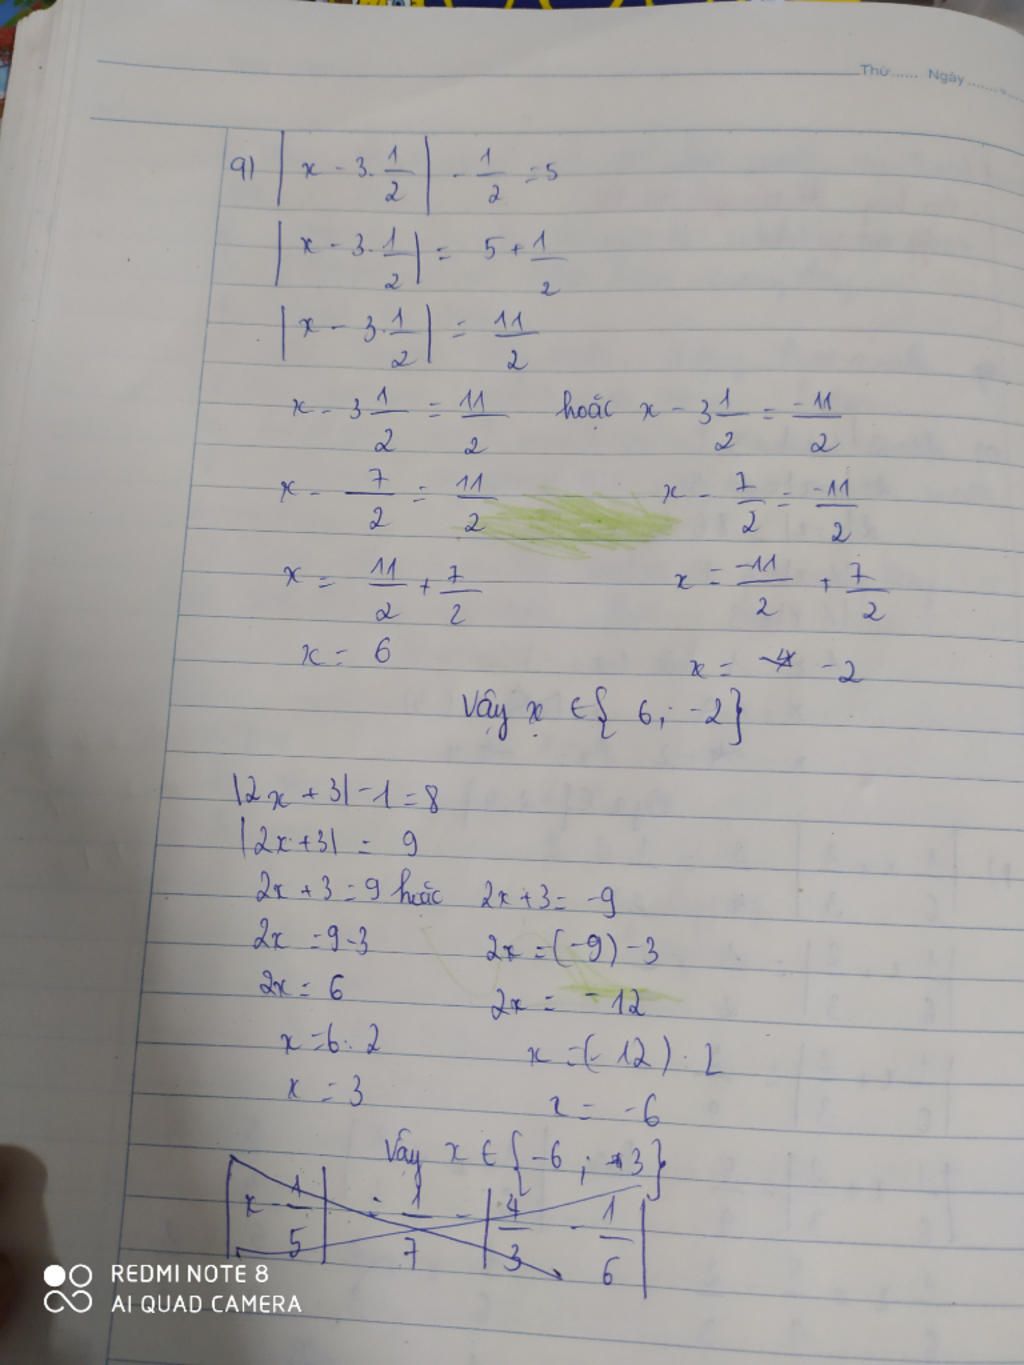 Thứ...... Ngày.......
a) |x - 3.1/2| - 1/2 = 5
|x - 3.1/2| = 5 + 1/2
|x - 3.1/2| = 11/2
x - 3 1/2 = 11/2 hoặc x - 3 1/2 = -11/2
x - 7/2 = 11/2 x - 7/2 = -11/2
x = 11/2 + 7/2 x = -11/2 + 7/2
x = 6 x = -2
Vậy x ∈ { 6 ; -2}
|2x + 3| - 1 = 8
|2x + 3| = 9
2x + 3 = 9 hoặc 2x + 3 = -9
2x = 9 - 3 2x = (-9) - 3
2x = 6 2x = -12
x = 6 : 2 x = (-12) : 2
x = 3 x = -6
Vậy x ∈ {-6 ; 3}
|x - 1/5| = 1/7 - |4/3 - 1/6|
REDMI NOTE 8
AI QUAD CAMERA